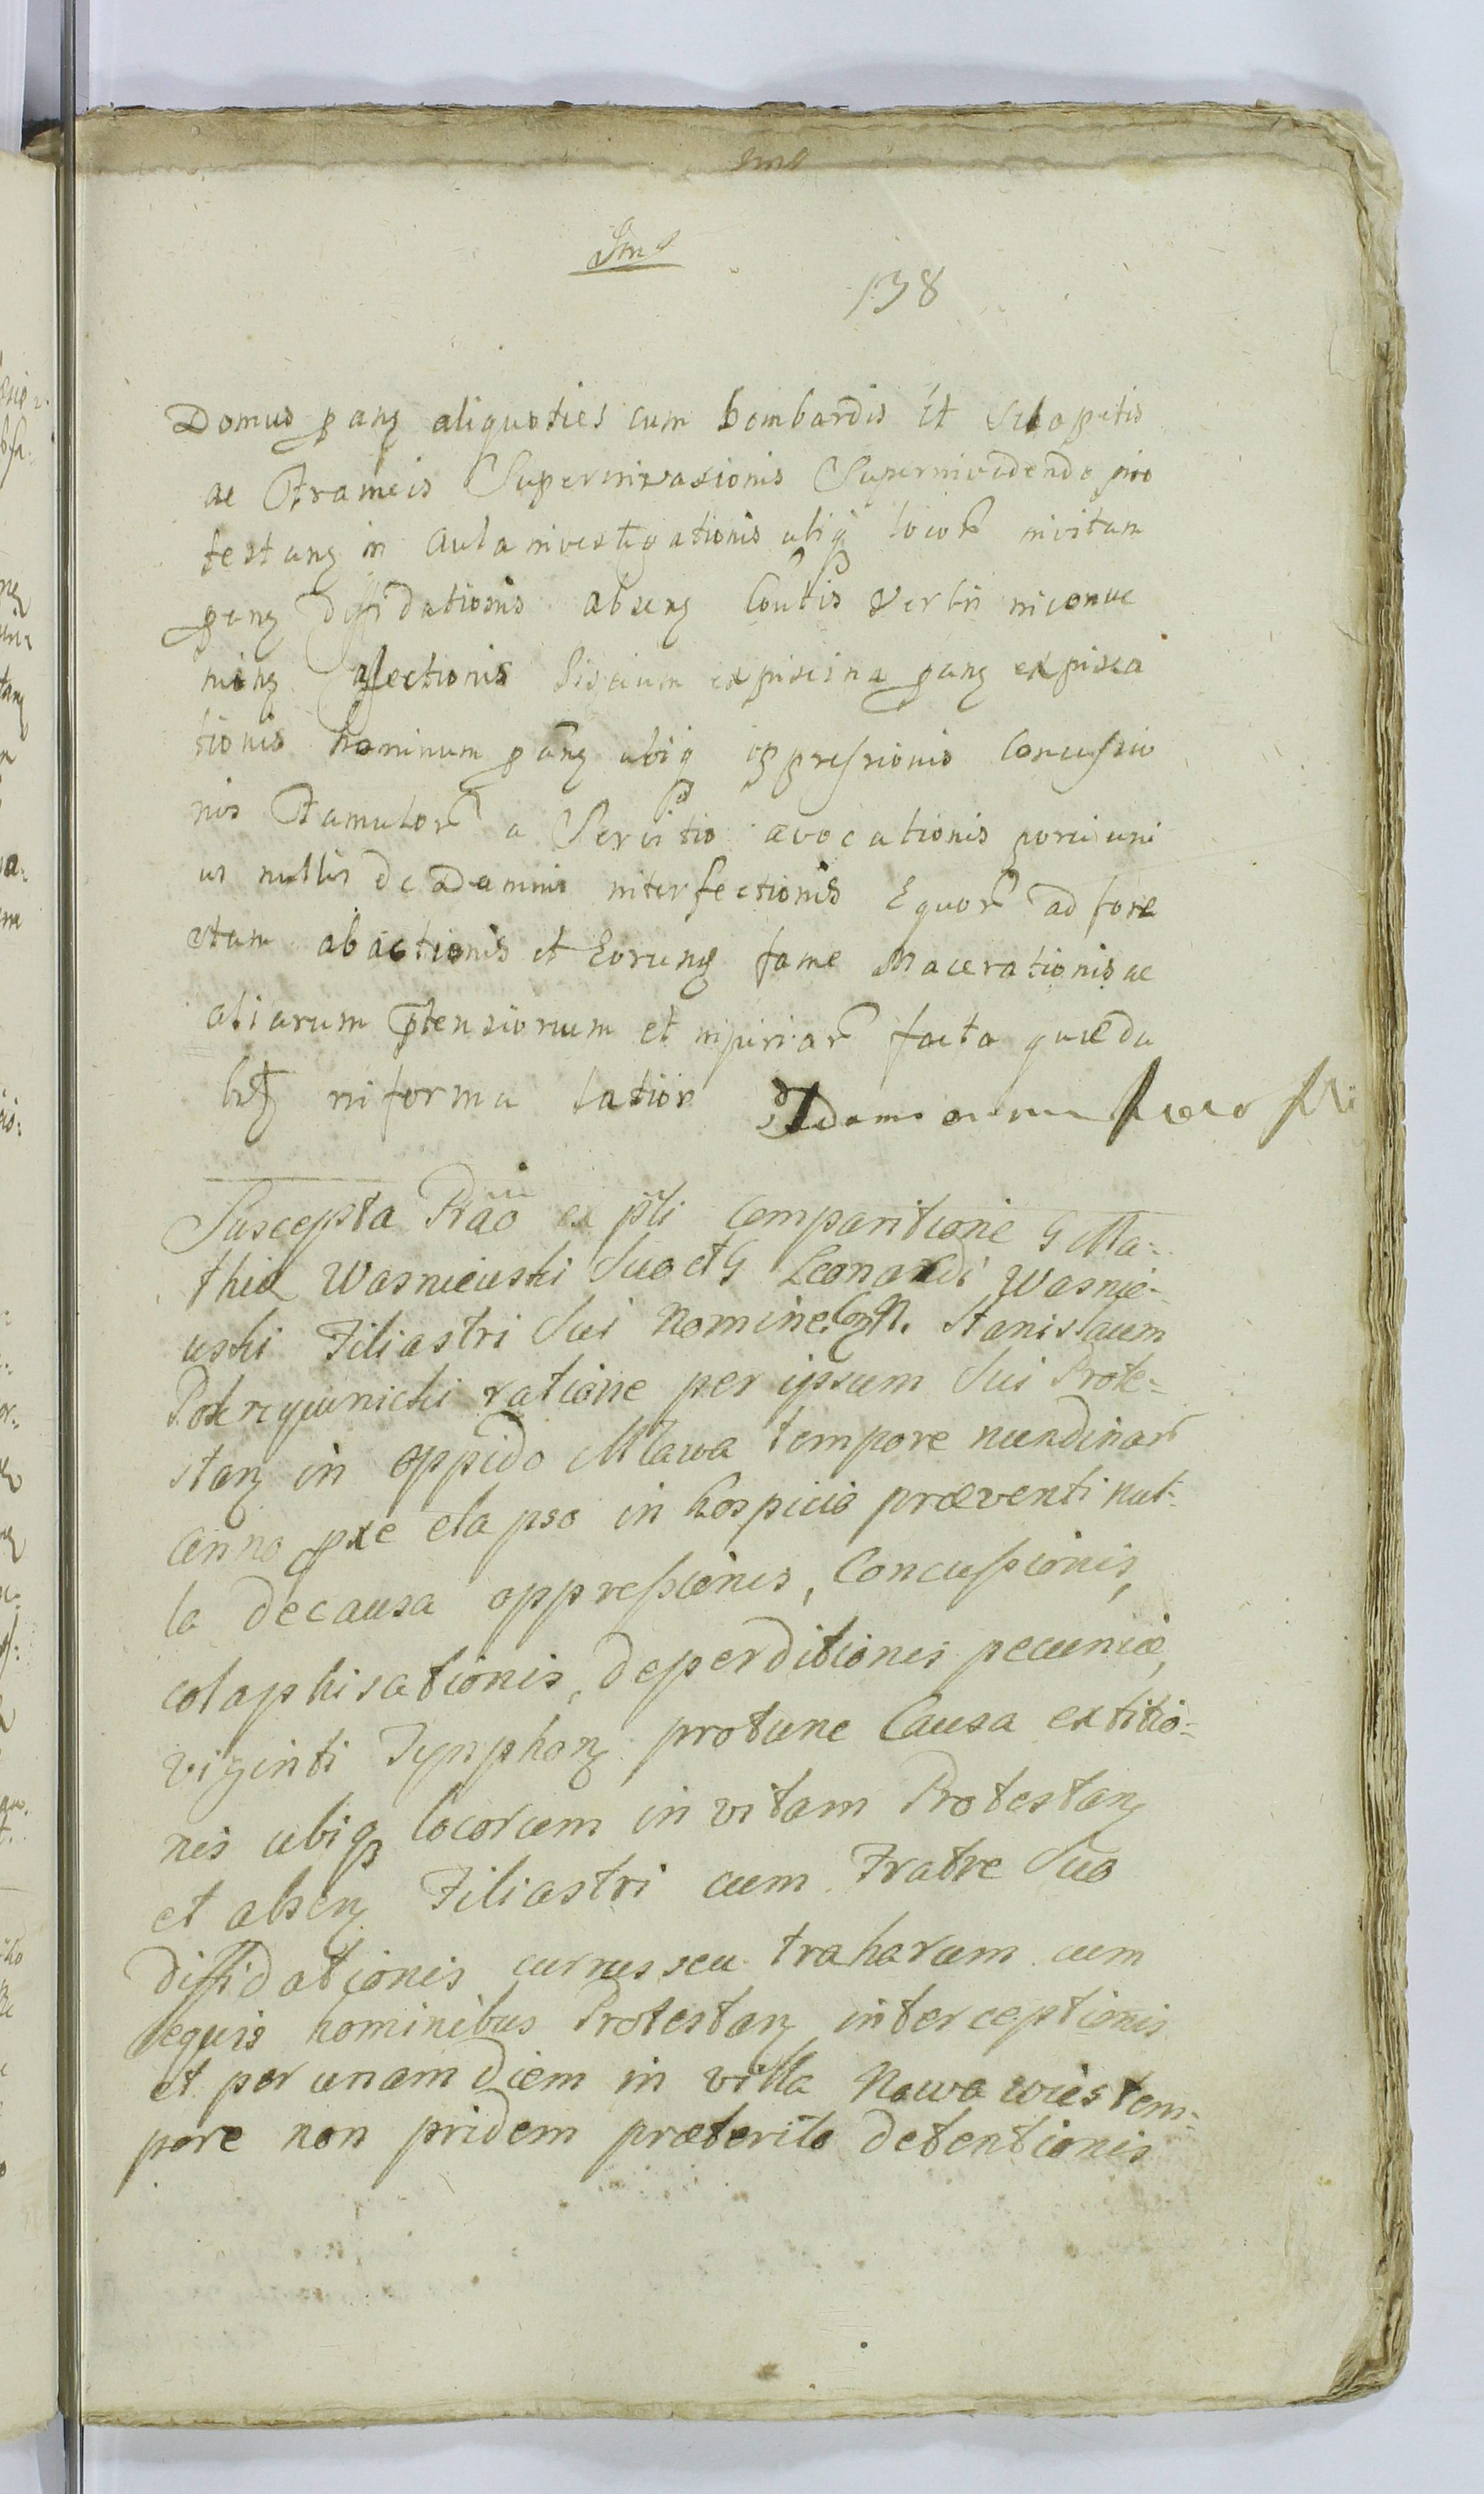 138
Domus pang aliquoties cum bombardis et sclopetis
ac Frameis Superinvasionis Superinvidendo pro
testang in Aula investigationis ubiq locor invitam
pang diffidationis abseng Contis Verbis inconve
ning affectionis Piscium ex piscina pang expisca
tionis hominum pang ubiq oppressionis Concussio
nis Famulor a Servitio avocationis porci uni
us nullis de damni interfectionis Equor ad fore
stam abactionis et Eorung fame Macerationis ac
aliarum ptensionum et injuriar facta quæ du
in forma latior
Suscepta Rãõ ex pti Comparitione G Ma-
thiæ Wasniewski Suo et G Leonardi Wasnie-
wski Filiastri Sui Nomine Cong N. Stanislaum
Pokrzywnicki ratione per ipsum Sui Prote-
stang in oppido Mlawa tempore nundinar
anno pxe elapso in hospicio præventi nul-
la de causa oppressionis, Concussionis,
colaphisationis, deperditionis pecuniæ,
viginti Tynphong protunc Causa extitio-
nis ubiq locorum in vitam Protestang
et abseng Filiastri cum Fratre Suo
diffidationis currus seu traharum cum
equis hominibus Protestang interceptionis
et per unam diem in villa Nowawies tem-
pore non pridem præterito detentionis